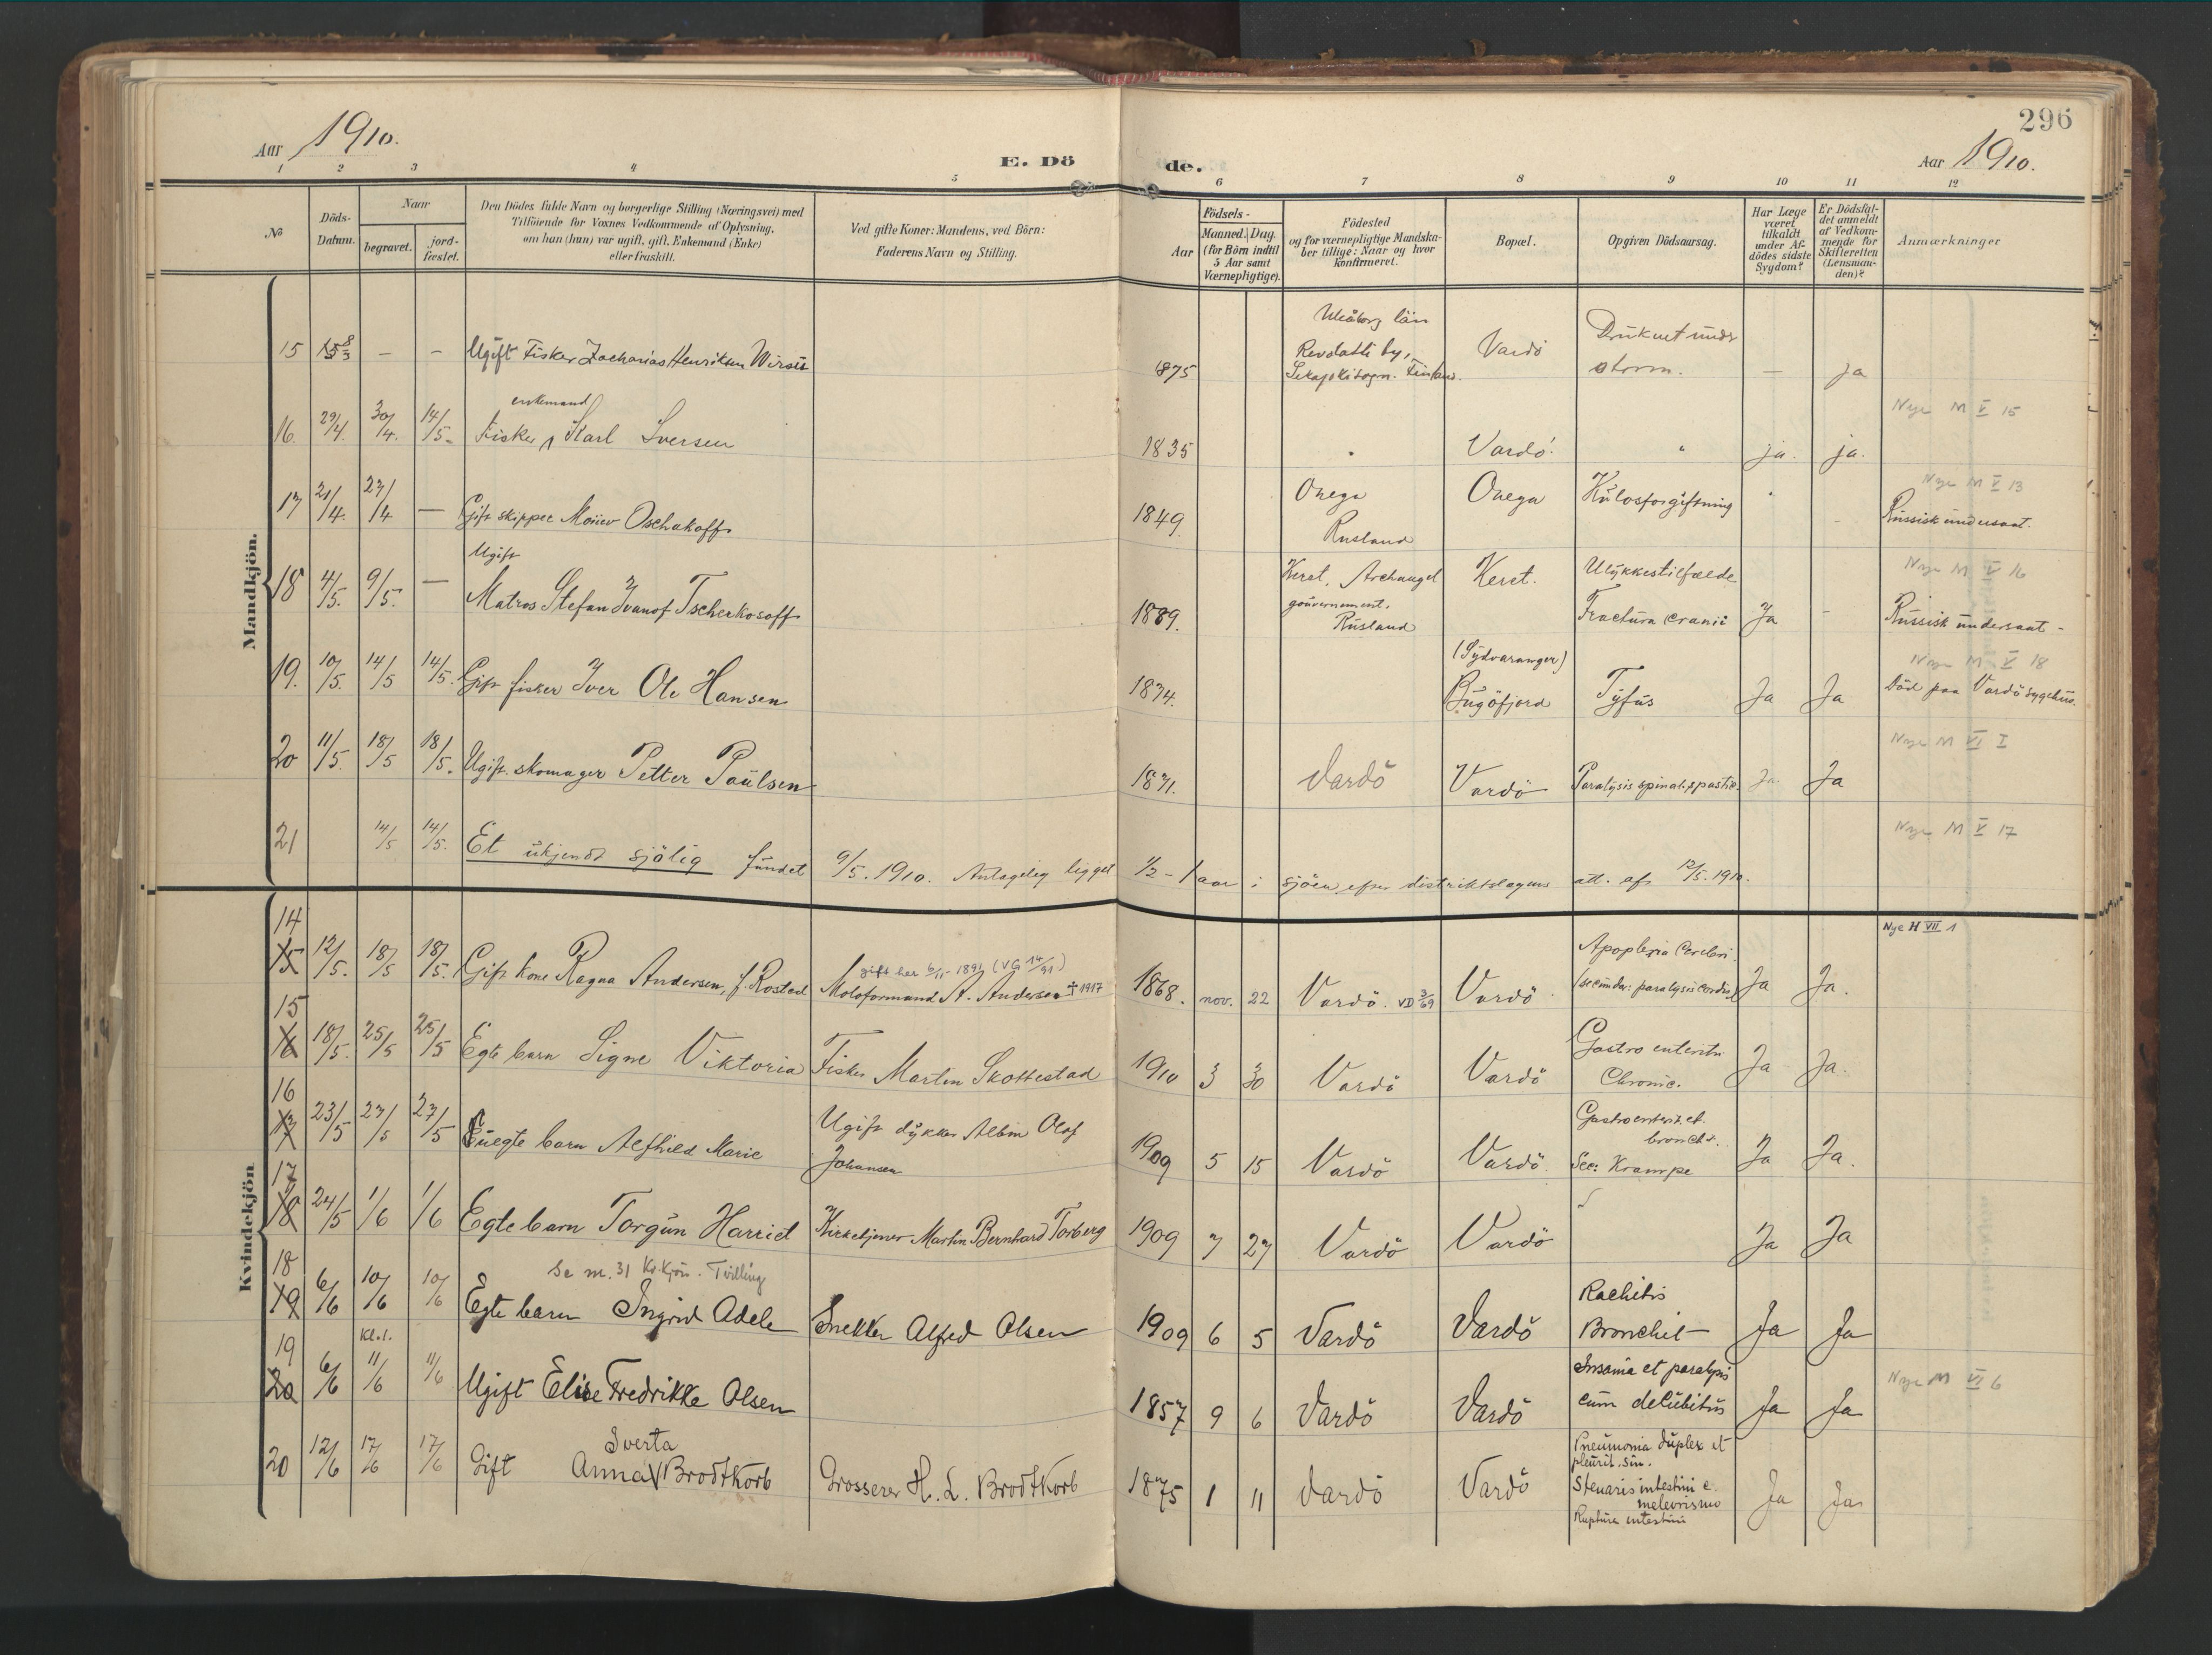 296
Aar 1910.
E. Dö
de.
Aar 1910.
1 2 3 4 5 6 7 8 9 10 11 12
No
Döds-
Datum.
Naar
begravet.
jord-
fæstet.
Den Dödes fulde Navn og borgerlige Stilling (Næringsvei) med
Tilföiende for Voxnes Vedkommende af Oplysning,
om han (hun) var ugift, gift, Enkemand (Enke)
eller fraskilt.
Ved gifte Koner: Mandens, ved Börn:
Faderens Navn og Stilling.
Födsels-
Aar
Maaned. Dag.
(for Börn indtil
5 Aar samt
Værnepligtige).
Födested
og for værnepligtige Mandska-
ber tillige: Naar og hvor
konfirmeret.
Bopæl.
Opgiven Dödsaarsag.
Har Læge
været
tilkaldt
under Af-
dödes sidste
Sygdom?
Er Dödsfal-
det anmeldt
af Vedkom-
mende for
Skifteretten
(Lensman-
den)?
Anmærkninger
Mandkjön.
15 – – Ugift Fisker Zacharias Henriksen 1875
Uleåborg län
by,
Finland.
Vardö
Druknet under
storm. – ja
Nye M V 15
enkemand
16. 29/4. 30/4. 14/5. Fisker Karl Iversen 1835 Vardö. " ja. ja.
Nye M V 13
17 21/4. 27/4 – Gift skipper Oschakoff 1849. Onega
Rusland
Onega Kulosforgiftning Russisk undersaat.
Nye M V 16
18 4/5. 9/5. – Ugift
Matros Stefan Ivanof Tscherkosoff 1889. Keret, Archangel
gouvernement.
Rusland
Keret. Ulykkestilfælde
Fractura cranii Ja – Russisk undersaat -
Nye M V 18
19. 10/5. 14/5 14/5. Gift fisker Iver Ole Hansen 1874. (Sydvaranger)
Bugöfjord Tyfus Ja Ja Död paa Vardö sygehus.
Nye M VI I
20 11/5. 18/5 18/5. Ugift skomager Petter Paulsen 1871. Vardö Vardö Paralysis spinal. spastic. Ja. Ja
Nye M V 17
21 14/5 14/5. Et ukjend sjölig fundet 9/5. 1910. Antagelig ligget 1/2 - 1 aar i sjöen efter distriktslægens att. af 12/5. 1910.
Kvindekjön
Nye H VII 1
14
15 12/5. 18/5 18/5. Gift kone Ragna Andersen, f. Rostad
gift her 6/11 1891 (VG 14/91)
Moloformand A. Andersen † 1917
1868. nov. 22 Vardö. VD 3/69 Vardö. Apoplexia Cerebri.
(secundær: paralysis cordis) Ja Ja.
15
16 18/5. 25/5 25/5 Egte barn Signe Viktoria Fisker Martin Skottestad 1910 3 30 Vardö Vardö Gastro enterit.
Chronic. Ja Ja.
16
17 23/5 27/5 27/5 Uegte barn Alfhild Marie Ugift dykker Albin Olof
Johansen
1909 5 15 Vardö Vardö. Gastroenterit. et.
bronchit.
Sec: Krampe Ja Ja.
17
18 24/5 1/6 1/6 Egte barn Torgun Harriet Kirketjener Martin Bernhard Torberg 1909 7 27 Vardö Vardö Ja Ja
18
19 6/6 10/6 10/6 Se nr. 31 Kv.kjön. Tvilling
Egte barn Ingrid Adele Snekker Alfred Olsen 1909 6 5 Vardö Vardö Rachitis
Bronchit Ja Ja
19
20 6/6 kl. 1. 11/6 11/6 Ugift Elise Fredrikke Olsen 1857 9 6 Vardö Vardö Insania et paralysis
cum decubitus Ja Ja Nye M VI 6
20 12/6 17/6 17/6 Gift Anna Sverta Brodtkorb Grosserer H. L. Brodtkorb 1875 1 11 Vardö Vardö Pneumonia duplex et
pleurit. sin.
intestini e.
Ruptura intestini Ja Ja